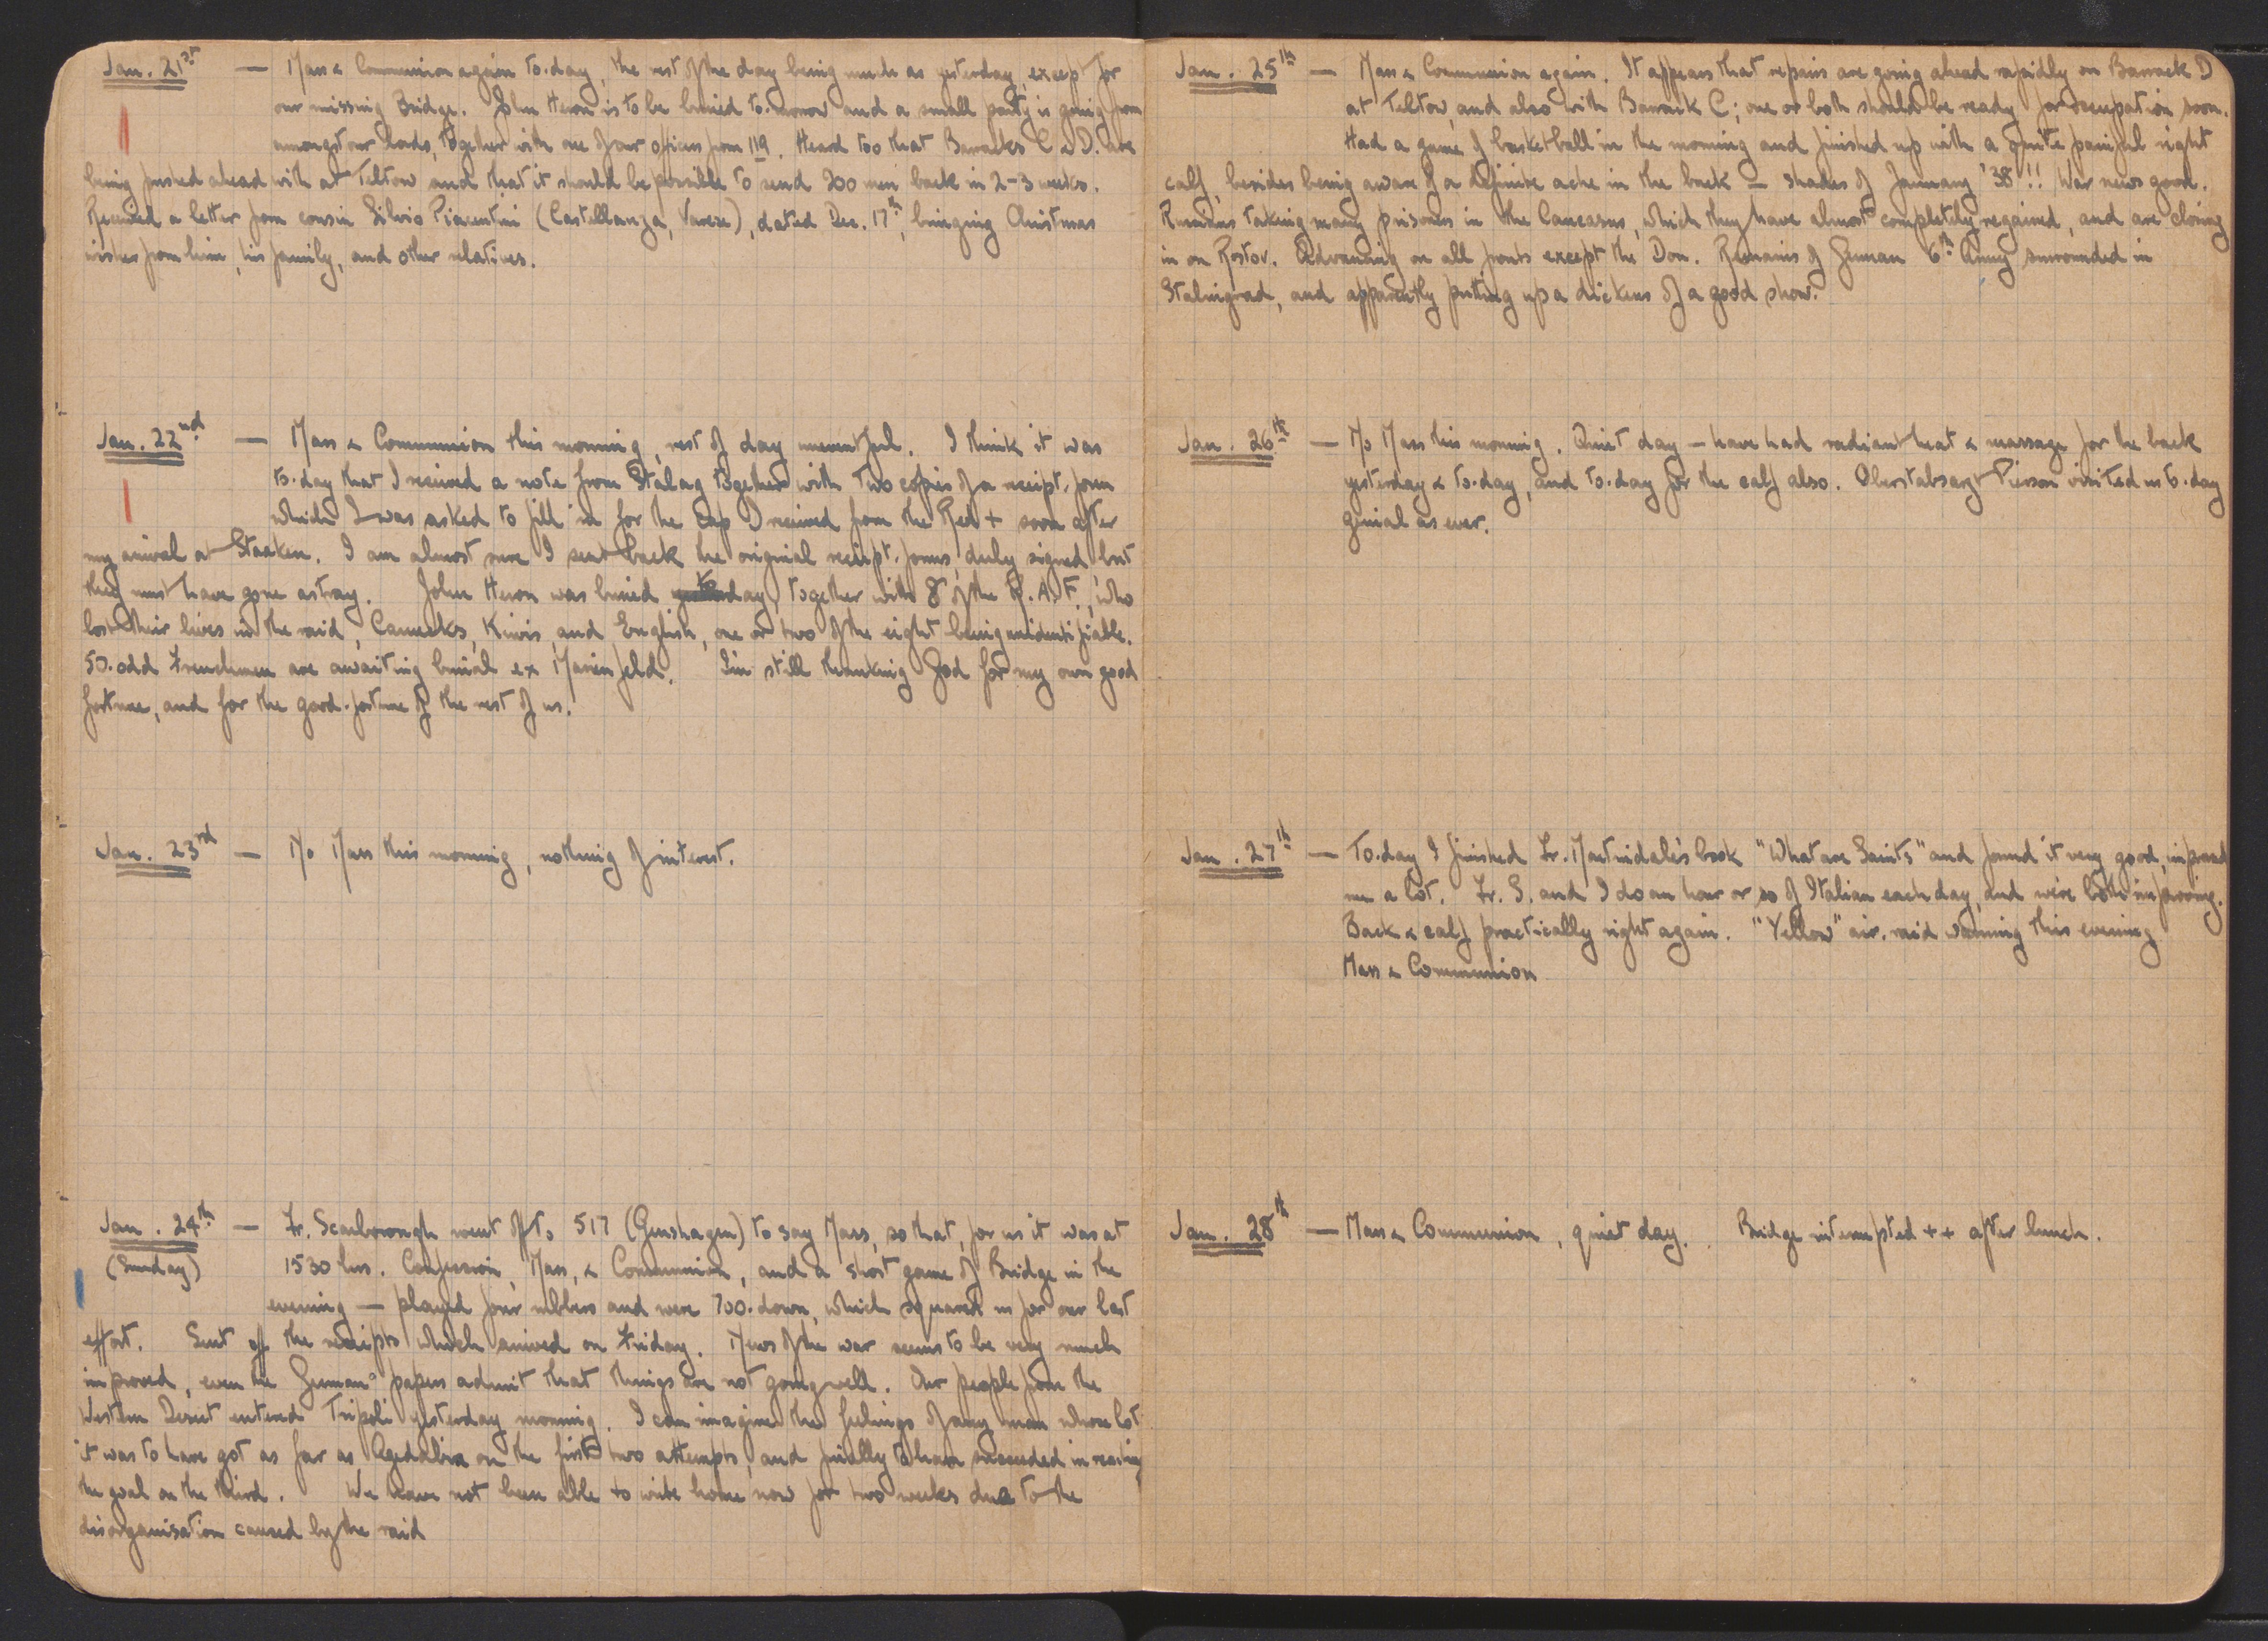 Jan. 21st — Mass & Communion again to-day, the rest of the day being much as yesterday, except for
our missing Bridge. John Heron is to be buried to-morrow and a small party is going from
amongst our lads, together with one of our officers from 119. Heard too that Barracks C & D. are
being pushed ahead with at Teltow and that it should be possible to send 200 men back in 2-3 weeks.
Received a letter from cousin Silvio Piacentini (Castellanza, Varese), dated Dec. 17th, bringing Christmas
wishes from him, his family, and other relatives.
Jan. 22nd — Mass & Communion this morning, rest of day uneventful. I think it was
to-day that I received a note from Stalag together with two copies of a receipt-form
which I was asked to fill in for the Cap I received from the Red + soon after
my arrival at Staaken. I am almost sure I sent back the original receipt-forms, duly signed but
they must have gone astray. John Heron was buried to-day, together with 8 of the R.A.F., who
lost their lives in the raid, Canucks, Kiwis, and English, one or two of the eight being unidentifiable.
50-odd Frenchmen are awaiting burial ex Marienfeld. I'm still thanking God for my own good
fortune, and for the good-fortune of the rest of us.
Jan. 23rd — No Mass this morning, nothing of interest.
Jan. 24th — Fr. Scarborough went off to 517 (Genshagen) to say Mass, so that, for us it was at
(Sunday) 1530 hrs. Confession, Mass, & Communion, and a short game of Bridge in the
evening — played four rubbers and were 700-down, which squared us for our last
effort. Sent off the receipts which arrived on Friday. News of the war seems to be very much
improved, even the German papers admit that things are not going well. Our people from the
Western Desert entered Tripoli yesterday morning. I can imagine the feelings of any man whose lot
it was to have got as far as Agedabia on the first two attempts, and finally to have succeeded in reaching
the goal on the third. We have not been able to write home now for two weeks due to the
disorganisation caused by the raid
Jan. 25th — Mass & Communion again. It appears that repairs are going ahead rapidly on Barrack D
at Teltow, and also with Barrack C; one or both should be ready for occupation soon.
Had a game of basket-ball in the morning and finished up with a quite painful right
calf, besides being aware of a definite ache in the back — shades of January '38!! War news good.
Russians taking many prisoners in the Caucasus, which they have almost completely regained, and are closing
in on Rostov. Advancing on all fronts except the Don. Remains of German 6th Army surrounded in
Stalingrad, and apparently putting up a dickens of a good show.
Jan. 26th — No Mass this morning. Quiet day — have had radiant heat & massage for the back
yesterday & to-day, and to-day for the calf also. Oberstabsarzt Pierson visited us to-day
genial as ever.
Jan. 27th — To-day I finished Fr. Martindale's book "What are Saints" and found it very good, impressed
me a lot. Fr. S. and I do an hour or so of Italian each day, and we're both improving.
Back & calf practically right again. "Yellow" air-raid warning this evening
Mass & Communion
Jan. 28th — Mass & Communion, quiet day. Bridge interrupted ++ after lunch.